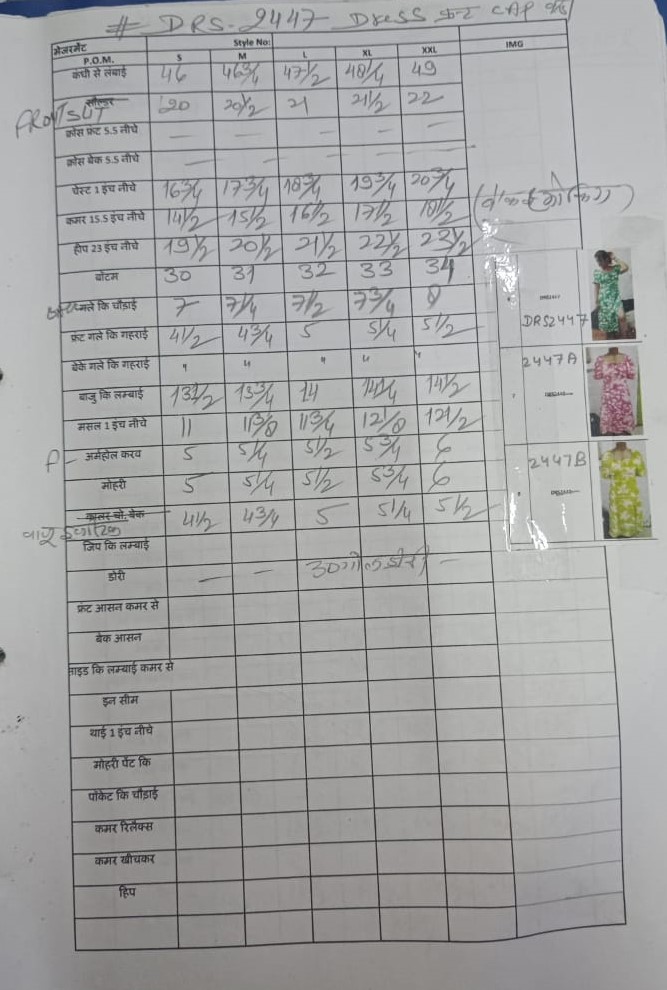 # DRS-2447 Dress
मेजरमेंट Style No: IMG
P.O.M. S M L XL XXL
कंधे से लंबाई 46 46 3/4 47 1/2 48 1/4 49
FRONT SLIT शोल्डर 20 20 1/2 21 21 1/2 22
क्रोस फ्रंट 5.5 नीचे — — — — —
क्रोस बेक 5.5 नीचे — — — — —
चेस्ट 1 इंच नीचे 16 3/4 17 3/4 18 3/4 19 3/4 20 3/4
कमर 15.5 इंच नीचे 14 1/2 15 1/2 16 1/2 17 1/2 18 1/2
हीप 23 इंच नीचे 19 1/2 20 1/2 21 1/2 22 1/2 23 1/2
बोटम 30 31 32 33 34
गले कि चौड़ाई 7 7 1/4 7 1/2 7 3/4 8
फ्रंट गले कि गहराई 4 1/2 4 3/4 5 5 1/4 5 1/2
बेके गले कि गहराई " " " " "
बाजु कि लम्बाई 13 1/2 13 3/4 14 14 1/4 14 1/2
मसल 1 इंच नीचे 11 11 3/8 11 3/4 12 1/8 12 1/2
अर्महोल करव 5 5 1/4 5 1/2 5 3/4 6
मोहरी 5 5 1/4 5 1/2 5 3/4 6
4 1/2 4 3/4 5 5 1/4 5 1/2
जिप कि लम्बाई
डोरी — — —
फ्रंट आसन कमर से
बेक आसन
साइड कि लम्बाई कमर से
इन सीम
थाई 1 इंच नीचे
मोहरी पेंट कि
पोकेट कि चौड़ाई
कमर रिलैक्स
कमर खीचकर
हिप
DRS2447
2447A
2447B